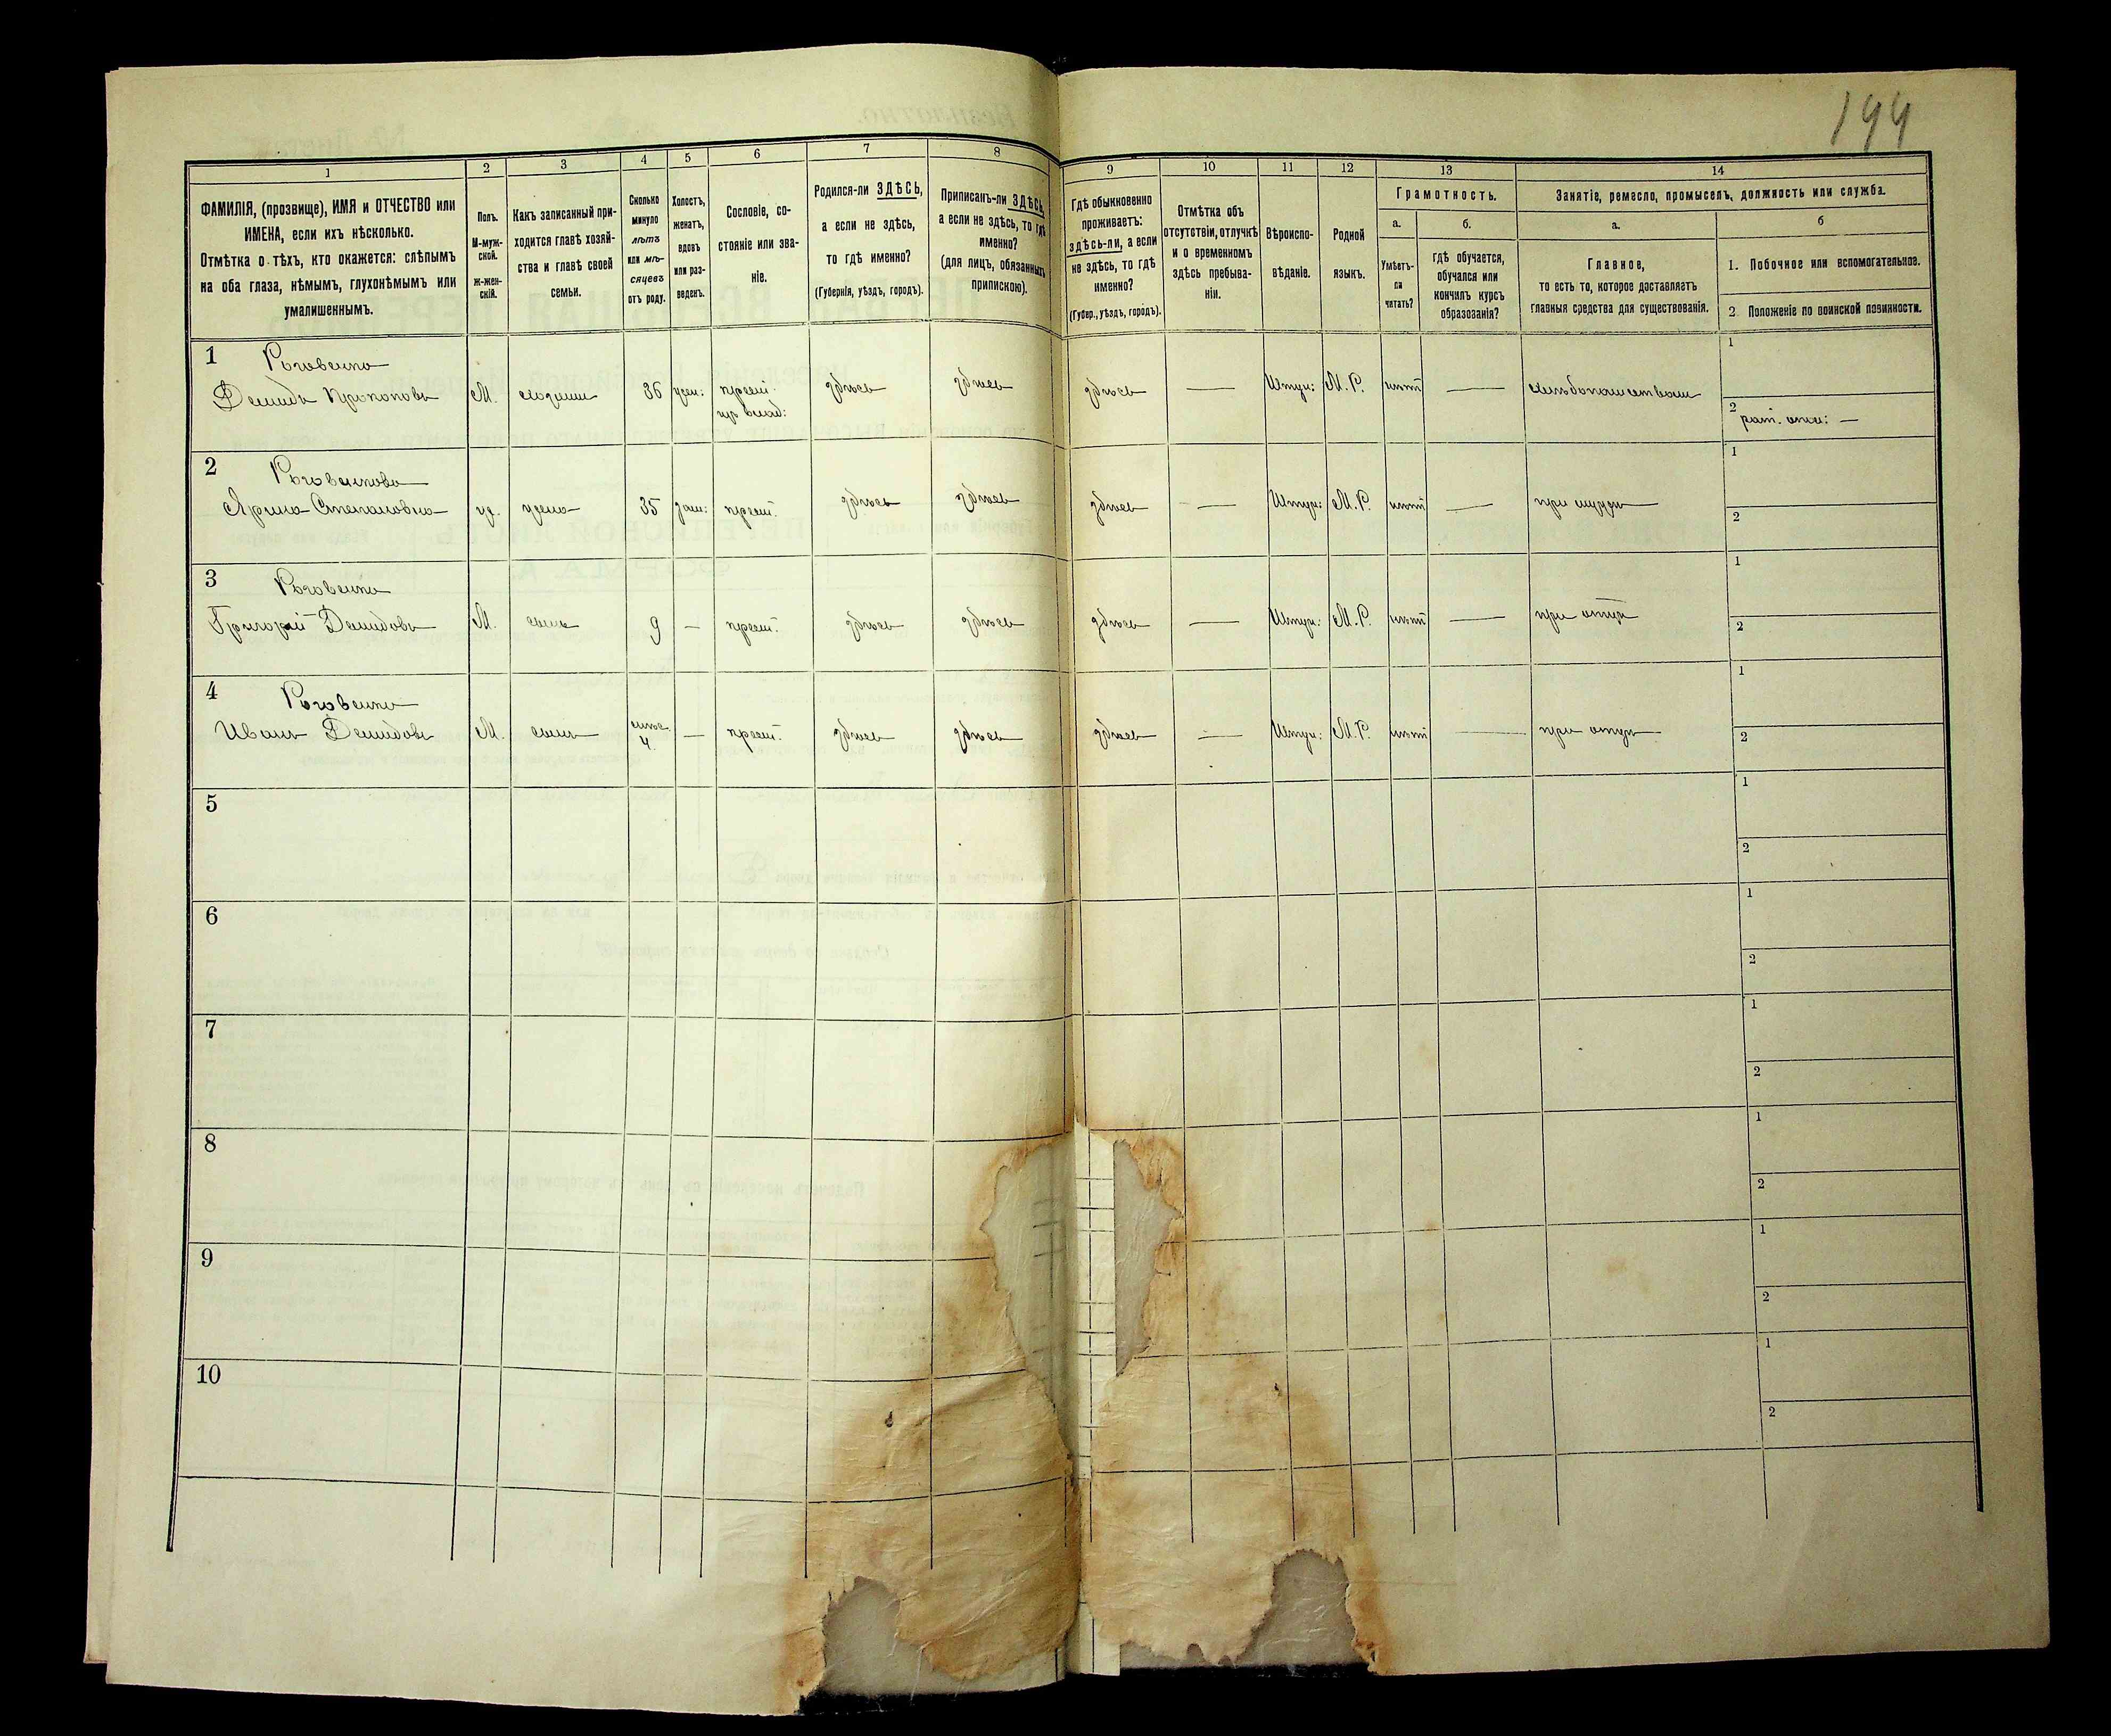 194
1
2
3
4
5
6
7
8
9
10
11
12
13
14
ФАМИЛІЯ, (прозвище), ИМЯ и ОТЧЕСТВО или
ИМЕНА, если ихъ нѣсколько.
Отмѣтка о тѣхъ, кто окажется: слѣпымъ
на оба глаза, нѣмымъ, глухонѣмымъ или
умалишеннымъ.
Полъ.
М-муж-
ской.
ж-жен-
скій.
Какъ записанный при-
ходится главѣ хозяй-
ства и главѣ своей
семьи.
Сколько
минуло
лѣтъ
или мѣ-
сяцевъ
отъ роду.
Холостъ,
женатъ,
вдовъ
или раз-
веденъ.
Сословіе, со-
стояніе или зва-
ніе.
Родился-ли ЗДѢСЬ,
а если не здѣсь,
то гдѣ именно?
(Губернія, уѣздъ, городъ).
Приписанъ-ли ЗДѢСЬ,
а если не здѣсь, то гдѣ
именно?
(для лицъ, обязанныхъ
припискою).
Гдѣ обыкновенно
проживаетъ:
здѣсь-ли, а если
не здѣсь, то гдѣ
именно?
(Губер., уѣздъ, городъ).
Отмѣтка объ
отсутствіи, отлучкѣ
и о временномъ
здѣсь пребыва-
ніи.
Вѣроиспо-
вѣданіе.
Родной
языкъ.
Грамотность.
а.
Умѣетъ-
ли
читать?
б.
гдѣ обучается,
обучался или
кончилъ курсъ
образованія?
Занятіе, ремесло, промыселъ, должность или служба.
а.
Главное,
то есть то, которое доставляетъ
главныя средства для существованія.
б
1. Побочное или вспомогательное.
2 Положеніе по воинской повинности.
1
Роговенко
Демидъ Прокоповъ
М. хозяинъ 36 жен: крест. здѣсь здѣсь здѣсь — Штун: М.Р. нѣтъ — хлѣбопашествомъ
1
2 рат. опол: —
2
Роговенкова
Арина Степановна
ж. жена 35 зам: крест. здѣсь здѣсь здѣсь — Штун: М.Р. нѣтъ — при мужѣ
1
2
3
Роговенко
Григорій Демидовъ
М. сынъ 9 — крест. здѣсь здѣсь здѣсь — Штун: М.Р. нѣтъ — при отцѣ
1
2
4
Роговенко
Иванъ Демидовъ
М. сынъ 4. — крест. здѣсь здѣсь здѣсь — Штун: М.Р. нѣтъ — при отцѣ
1
2
5
1
2
6
1
2
7
1
2
8
1
2
9
1
2
10
1
2